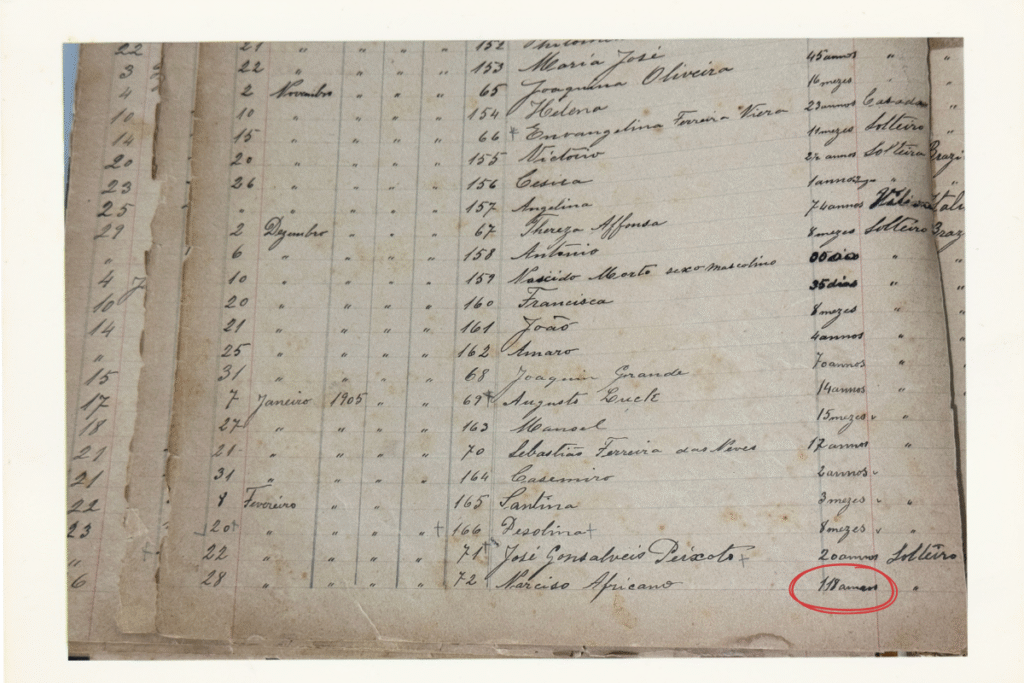 22 21 " " " 152
3 22 " " " 153 Maria José 45 annos "
4 2 Novembro " " " 65 Joaquina Oliveira 16 mezes "
10 10 " " " 154 Helena 23 annos Casada
14 15 " " " 66 + Envangelina Ferreira Viera 11 mezes Solteiro
20 20 " " " 155 Victorio 22 annos Solteira Brazi
23 26 " " " 156 1 annos
25 " " " " " 157 Angelina 74 annos
29 2 Dezembro " " " 67 Thereza Affonsa 8 mezes Solteiro Brazi
" 6 " " " " 158 Antonio
4 10 " " " " 159 Nascido Morto sexo masculino 35 dias "
10 20 " " " " 160 Francisca 8 mezes "
14 21 " " " " 161 João 4 annos "
" 25 " " " " 162 Amaro 70 annos "
15 31 " " " " 68 Joaquin Grande 14 annos "
17 7 Janeiro 1905 " " 69 + Augusto Luck 15 mezes " "
18 27 " " " " 163 Manoel 17 annos "
21 21 " " " " 70 Sebastião Ferreira das Neves 2 annos "
21 31 " " " " 164 Casemiro 3 mezes " "
22 8 Fevereiro " " 165 Santina 8 mezes " "
23 20 " " " " + 166 Pesolina + 20 annos Solteiro
" 22 " " " " 71 + José Gonsalveis Peixoto + 118 annos "
6 28 " " " " 72 Narciso Africano